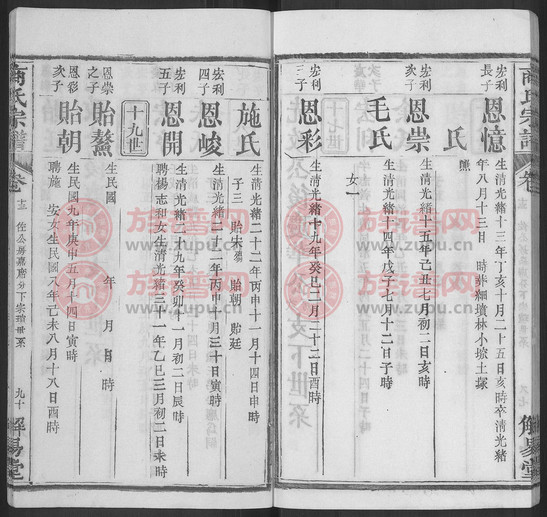 商氏宗譜
卷
解易堂
宏利長子
恩憶
生清光緒十三年丁亥十月二十五日亥時卒清光緒
年八月十三日 時葬細墳林小坡土塚
氏
無
宏利次子
恩崇
生清光緒十五年己丑七月初二日亥時
毛氏
生清光緒十四年戊子七月十二日子時
女一
宏利三子
恩彩
生清光緒十九年癸巳二月二十二日酉時
施氏
生清光緒二十二年丙申十一月十四日申時
子三 貽宋 貽朝 貽廷
宏利四子
恩峻
生清光緒二十二年丙申十月三十日寅時
宏利五子
恩開
生清光緒二十九年癸卯十一月初二日辰時
聘楊志和女生清光緒三十一年乙巳三月初二日未時
十九世
恩崇之子
貽鰲
生民國 年 月 日 時
恩彩次子
貽朝
生民國九年庚申五月十四日寅時
聘施 安女生民國八年己未八月十八日酉時
商氏宗譜
卷
九十
解易堂
族譜网
www.zupu.cn